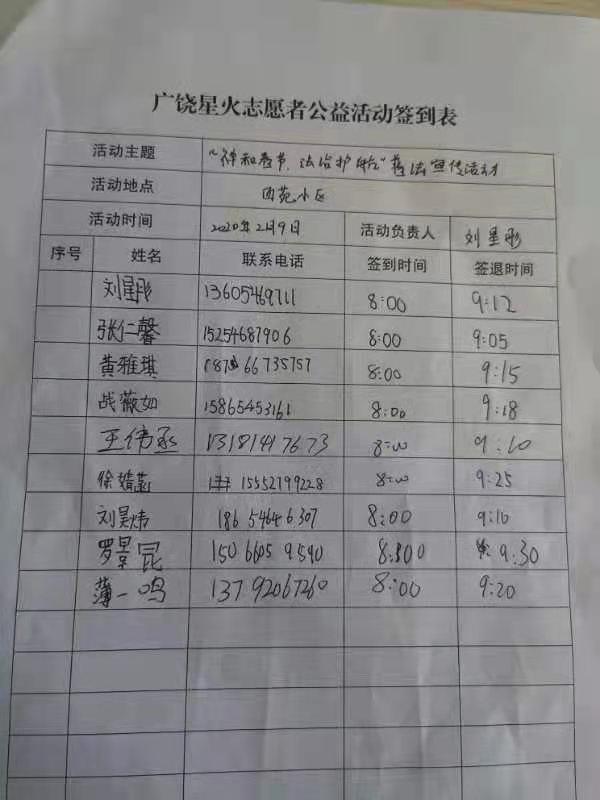 广饶星火志愿者公益活动签到表
活动主题 "祥和春节、法治护航"普法宣传活动
活动地点 西苑小区
活动时间 2020年2月9日 活动负责人 刘星彤
序号 姓名 联系电话 签到时间 签退时间
刘星彤 13605469711 8:00 9:12
张仁馨 15254687906 8:00 9:05
黄雅琪 66735757 8:00 9:15
战薇如 15865453161 8:00 9:18
王伟丞 13181417673 8:00 9:10
徐婧菡 15552799228 8:00 9:25
刘昊炜 18654646307 8:00 9:10
罗景昆 15066059590 8:00 9:30
薄一鸣 13792067260 8:00 9:20